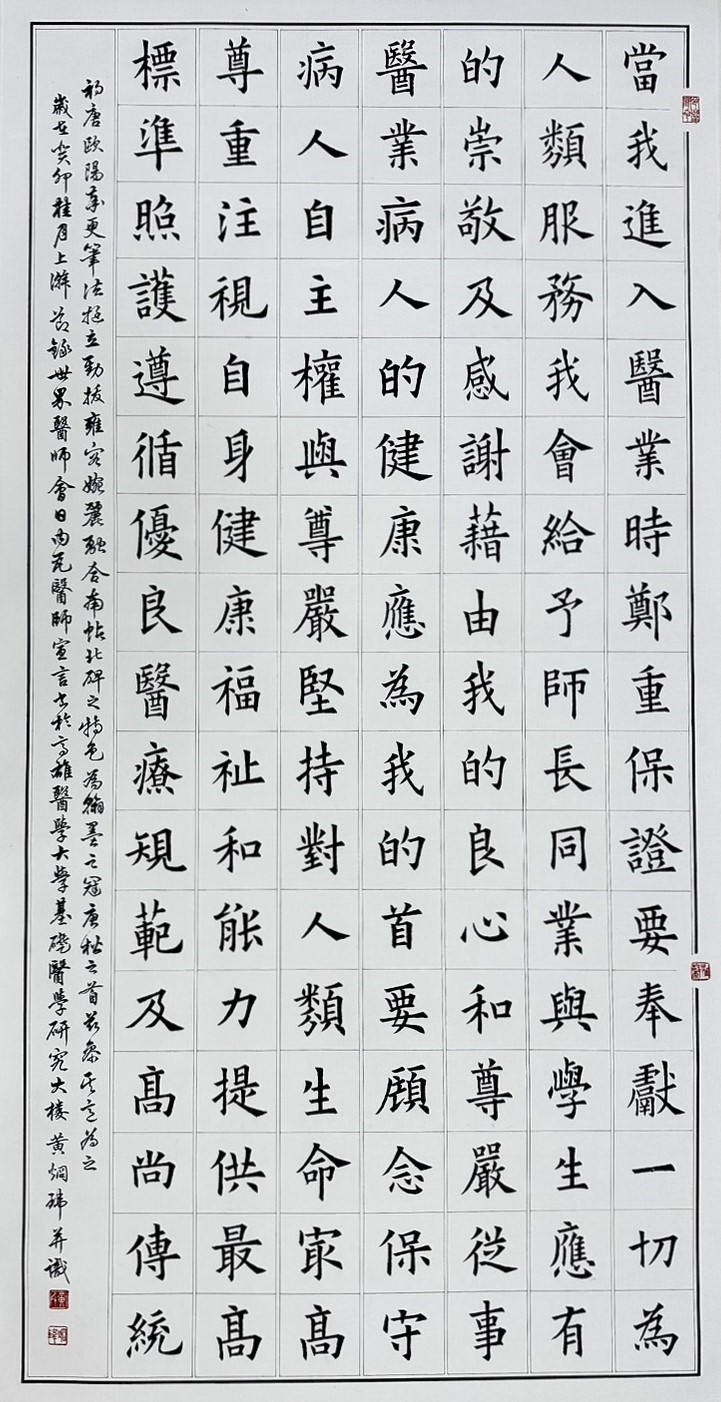 當我進入醫業時鄭重保證要奉獻一切為
人類服務我會給予師長同業與學生應有
的崇敬及感謝藉由我的良心和尊嚴從事
醫業病人的健康應為我的首要顧念保守
病人自主權與尊嚴堅持對人類生命寂高
尊重注視自身健康福祉和能力提供最高
標準照護遵循優良醫療規範及高尚傳統
初唐歐陽率更筆法挺立勁拔雍容婉麗融合南帖北碑之特色為翰墨之冠唐秘之首茲參其意為之
歲在癸卯桂月上澣節錄世界醫師會日內瓦醫師宣言書於高雄醫學大學基礎醫學研究大樓 黃炯瑋 并識